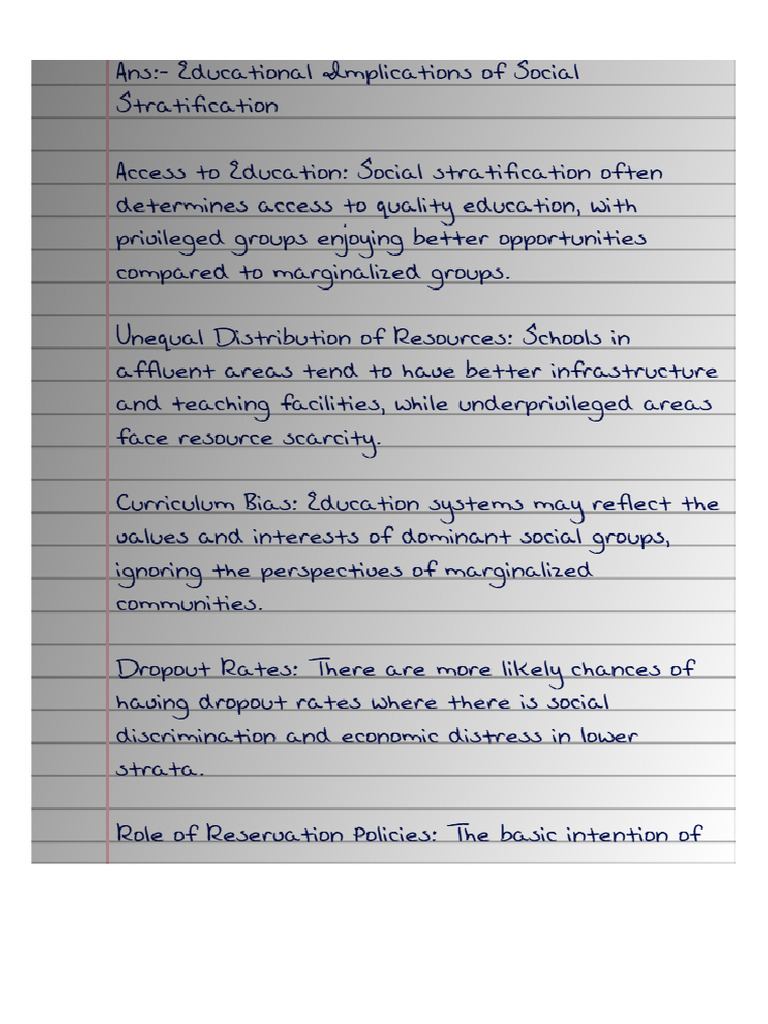 Ans:- Educational Implications of Social
Stratification
Access to Education: Social stratification often
determines access to quality education, with
privileged groups enjoying better opportunities
compared to marginalized groups.
Unequal Distribution of Resources: Schools in
affluent areas tend to have better infrastructure
and teaching facilities, while underprivileged areas
face resource scarcity.
Curriculum Bias: Education systems may reflect the
values and interests of dominant social groups,
ignoring the perspectives of marginalized
communities.
Dropout Rates: There are more likely chances of
having dropout rates where there is social
discrimination and economic distress in lower
strata.
Role of Reservation Policies: The basic intention of